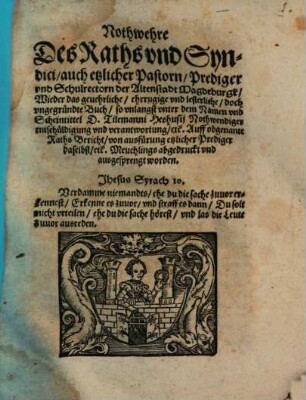 Nothwehre
Des Raths vnd Syn-
dici/ auch etzlicher Pastorn/ Prediger
vnd Schulrectorn der Altenstadt Magdeburgk/
Wieder das geuehrliche/ ehrrurige vnd lesterliche/ doch
vngegründte Buch/ so vnlangst vnter dem Namen vnd
Scheinnittel D. Tilemanni Heshusij Nothwendiger
entschüldigung vnd verantwortung/ etc. Auff obgenant
Raths Bericht/ von ausfürung etzlicher Prediger
daselbst/ etc. Meuchlings abgedruckt vnd
ausgesprengt worden.
Jhesus Syrach 10.
Verdamme niemandts/ ehe du die sache zuuor er-
kennest/ Erkenne es zuuor/ vnd straff es dann/ Du solt
nicht vrteilen/ ehe du die sache hörest/ vnd las die Leute
zuuor ausreden.